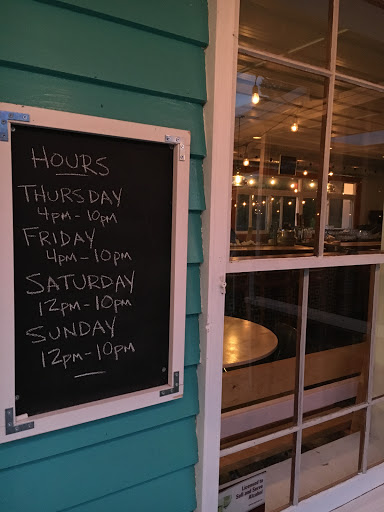 HOURS
THURSDAY
4PM-10PM
FRIDAY
4PM-10PM
SATURDAY
12PM-10PM
SUNDAY
12PM-10PM
Licensed to
Sell and Serve
Alcohol